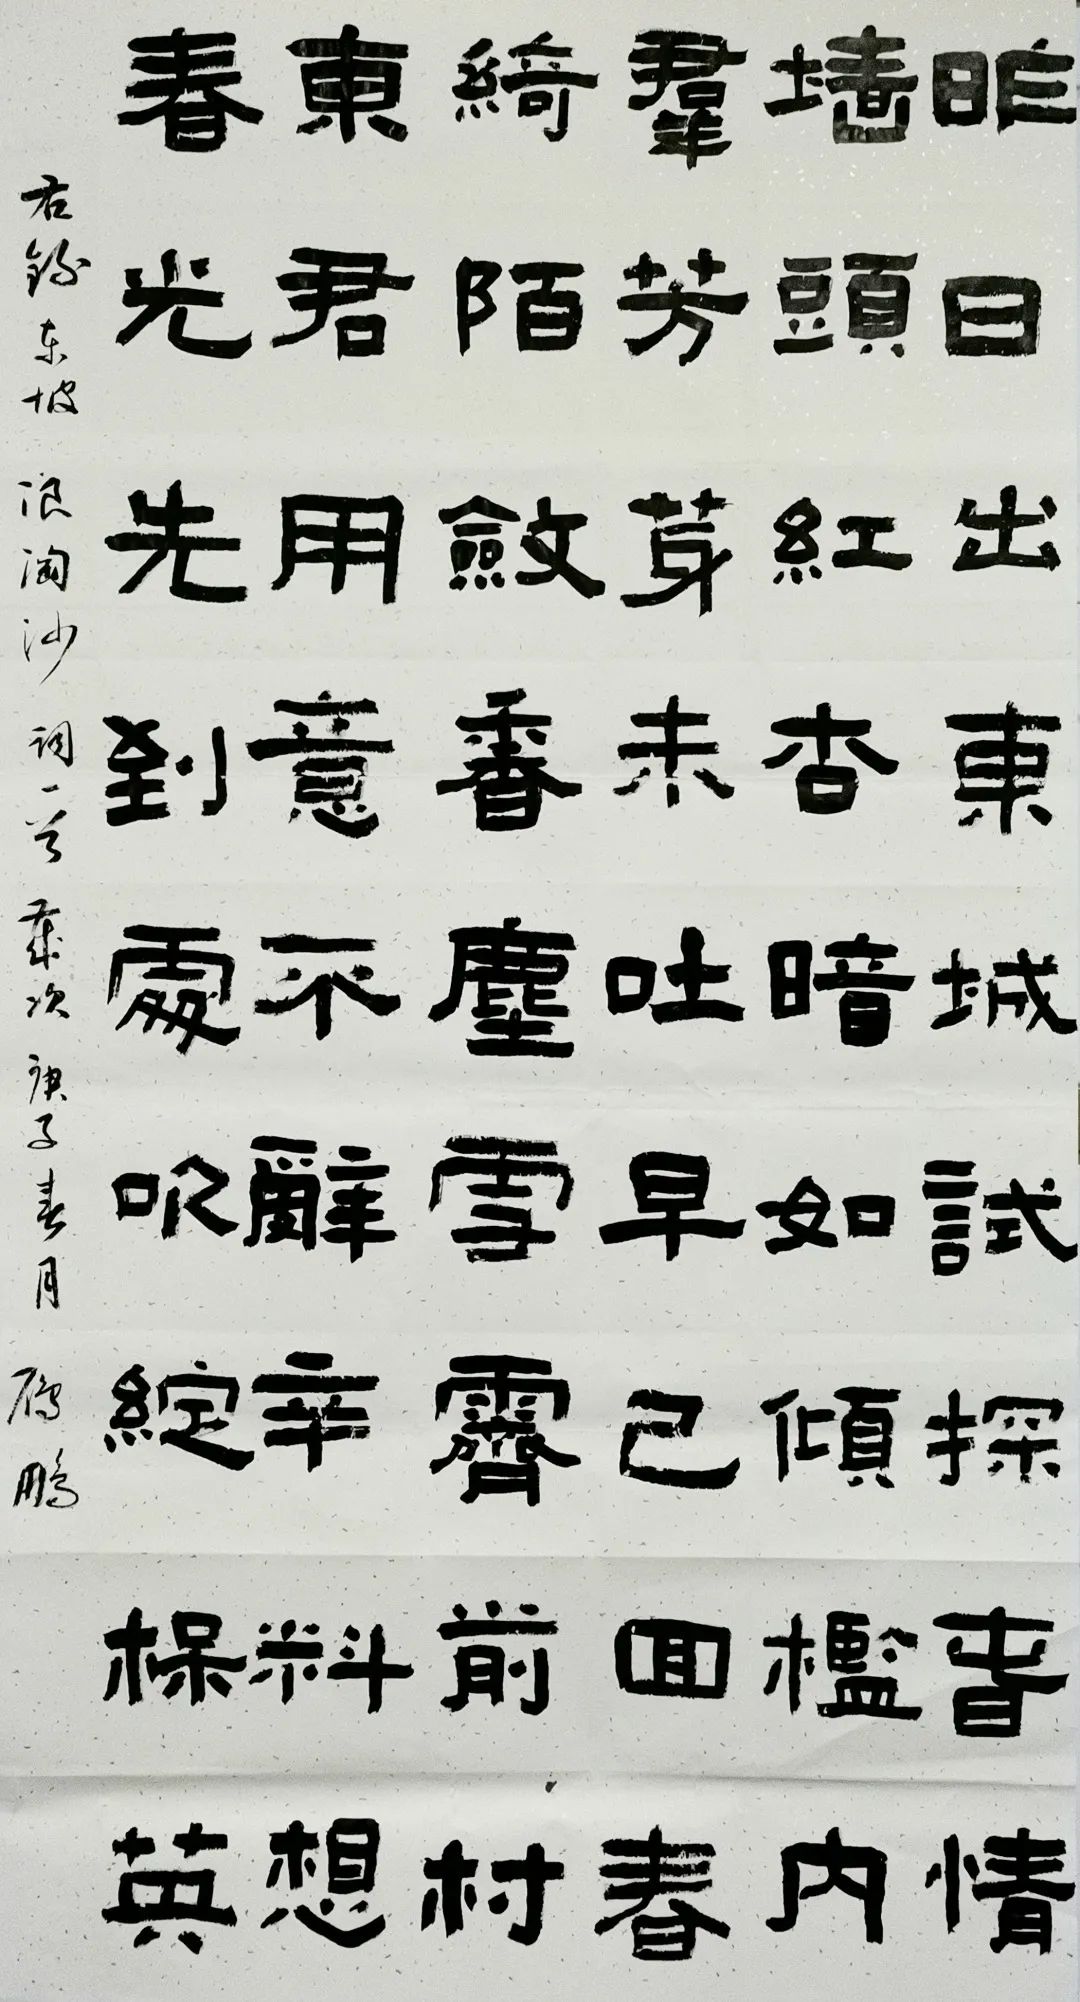 昨日出東城試探春情
墙頭紅杏暗如傾檻内
羣芳芽未吐早已回春
綺陌斂香塵雪霽前村
東君用意不辭辛料想
春光先到處吹綻梅英
右錄东坡浪淘沙词一首歲次庚子春月鵬